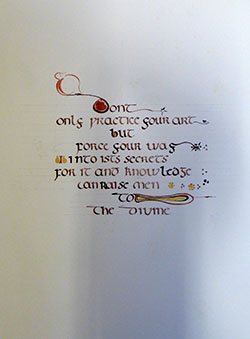 Dont
only practice your art
but
force your way
into its secrets
for it and knowledge
can raise men
to
the Divine